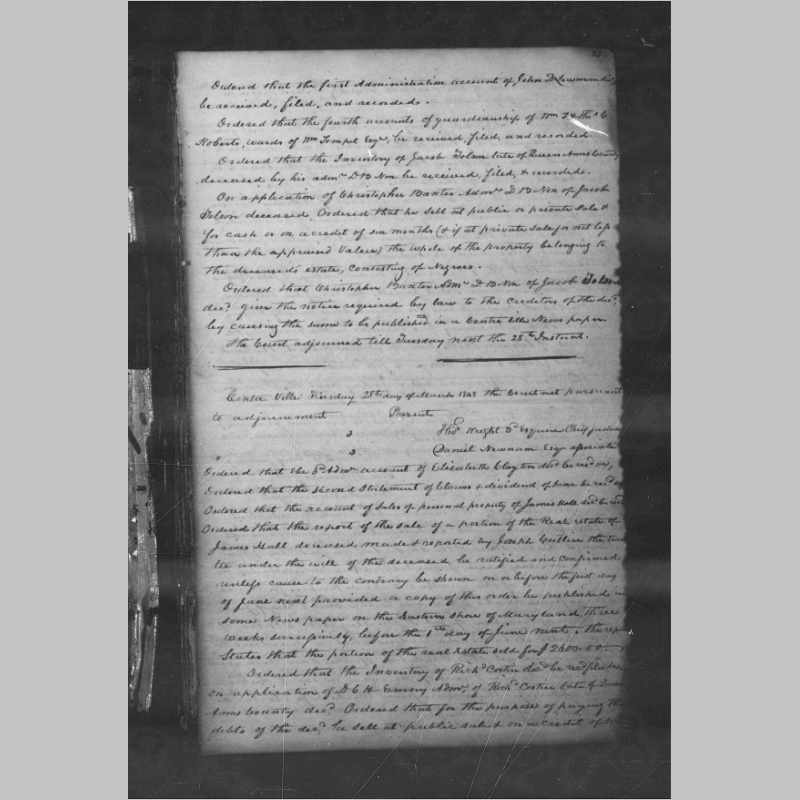 Ordered that the first Administration account of John D
be received, filed, and recorded.
Ordered that the fourth accounts of guardianship of Wm
Roberts, wards of Wm Tempel Esqr, be received, filed, and recorded
Ordered that the Inventory of Jacob Tolson late of Queen Anns County
deceased by his admr D B Non be received, filed, & recorded.
On application of Christopher Baxter Admr D B Non of Jacob
Tolson deceased, Ordered that he sell at public or private sale &
for cash or on a credit of six months (& if at private sale for not less
than the appraised value) the whole of the property belonging to
the deceaseds estate, consisting of Negroes.
Ordered that Christopher Baxter Admr D B Non of Jacob Tolson
decd give the notice required by law to the creditors of the decd
by causing the same to be published in a Centre ville News paper
The Court adjourned till Tuesday next the 28th Instant.
Centre Ville Tuesday 28th day of March the Court met pursuant
to adjournment Present
Thos Wright 3d Esquire Chief justice
Daniel Newnam Esqr associate
Ordered that the account of Elizabeth Clayton decd be
Ordered that the second Statement of Claims & dividend of
Ordered that the account of sales of personal property of James Hall decd be
Ordered that the report of the sale of a portion of the Real estate of
James Hall deceased made & reported by Joseph the
tee under the will of the deceased be ratified and confirmed
unless cause to the contrary be shown on or before the first day
of June next provided a copy of this order be published in
some News paper on the Eastern Shore of Maryland three
weeks successively, before the 1st day of June next. The
States that the portion of the real estate sold for $
Ordered that the Inventory of Richd Costin decd be
on application of D. C. H. Emory Admr of Richd Costin late of Queen
Anns County decd Ordered that for the purpose of paying the
debts of the decd he sell at public sale & on a credit of